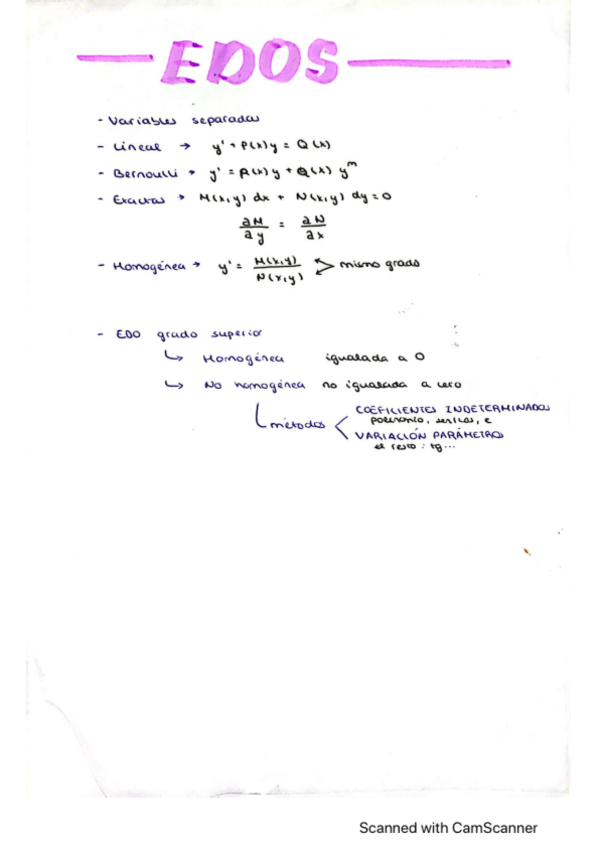 EDOS
- Variables separadas
- Lineal → y' + P(x)y = Q(x)
- Bernoulli → y' = P(x)y + Q(x) y^m
- Exactas → M(x,y) dx + N(x,y) dy = 0
∂M/∂y = ∂N/∂x
- Homogénea → y' = M(x,y)/N(x,y) mismo grado
- EDO grado superior
↳ Homogénea igualada a 0
↳ No homogénea no igualada a cero
métodos
COEFICIENTES INDETERMINADOS
polinomio, sen/cos, e
VARIACIÓN PARÁMETROS
el resto: tg...
Scanned with CamScanner